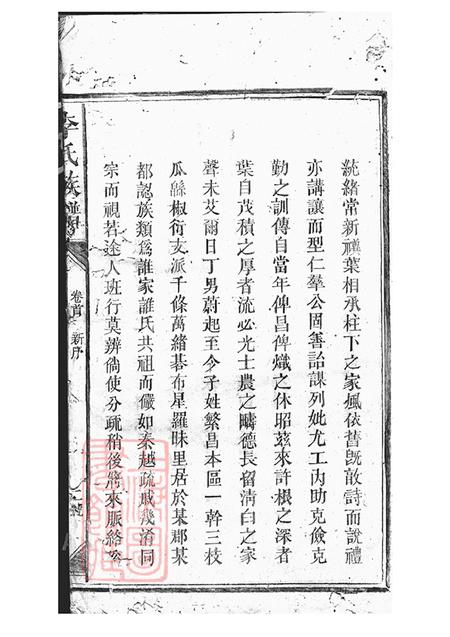 統緒常新禩葉相承柱下之家風依舊旣敢詩而說禮
亦講讓而型仁羣公固善詒謀列妣尤工內助克儉克
勤之訓傳自當年俾昌俾熾之休昭玆來許根之深者
葉自茂積之厚者流必光士農之疇德長留淸白之家
聲未艾爾日丁男蔚起至今子姓繁昌本區一幹三枝
瓜緜椒衍支派千條萬緒碁布星羅昧里居於某郡某
都認族類爲誰家誰氏共祖而儼如秦越疏戚幾淆同
宗而視若途人班行莫辨倘使分疏稍後將來脈絡
李氏族譜
卷首 新序